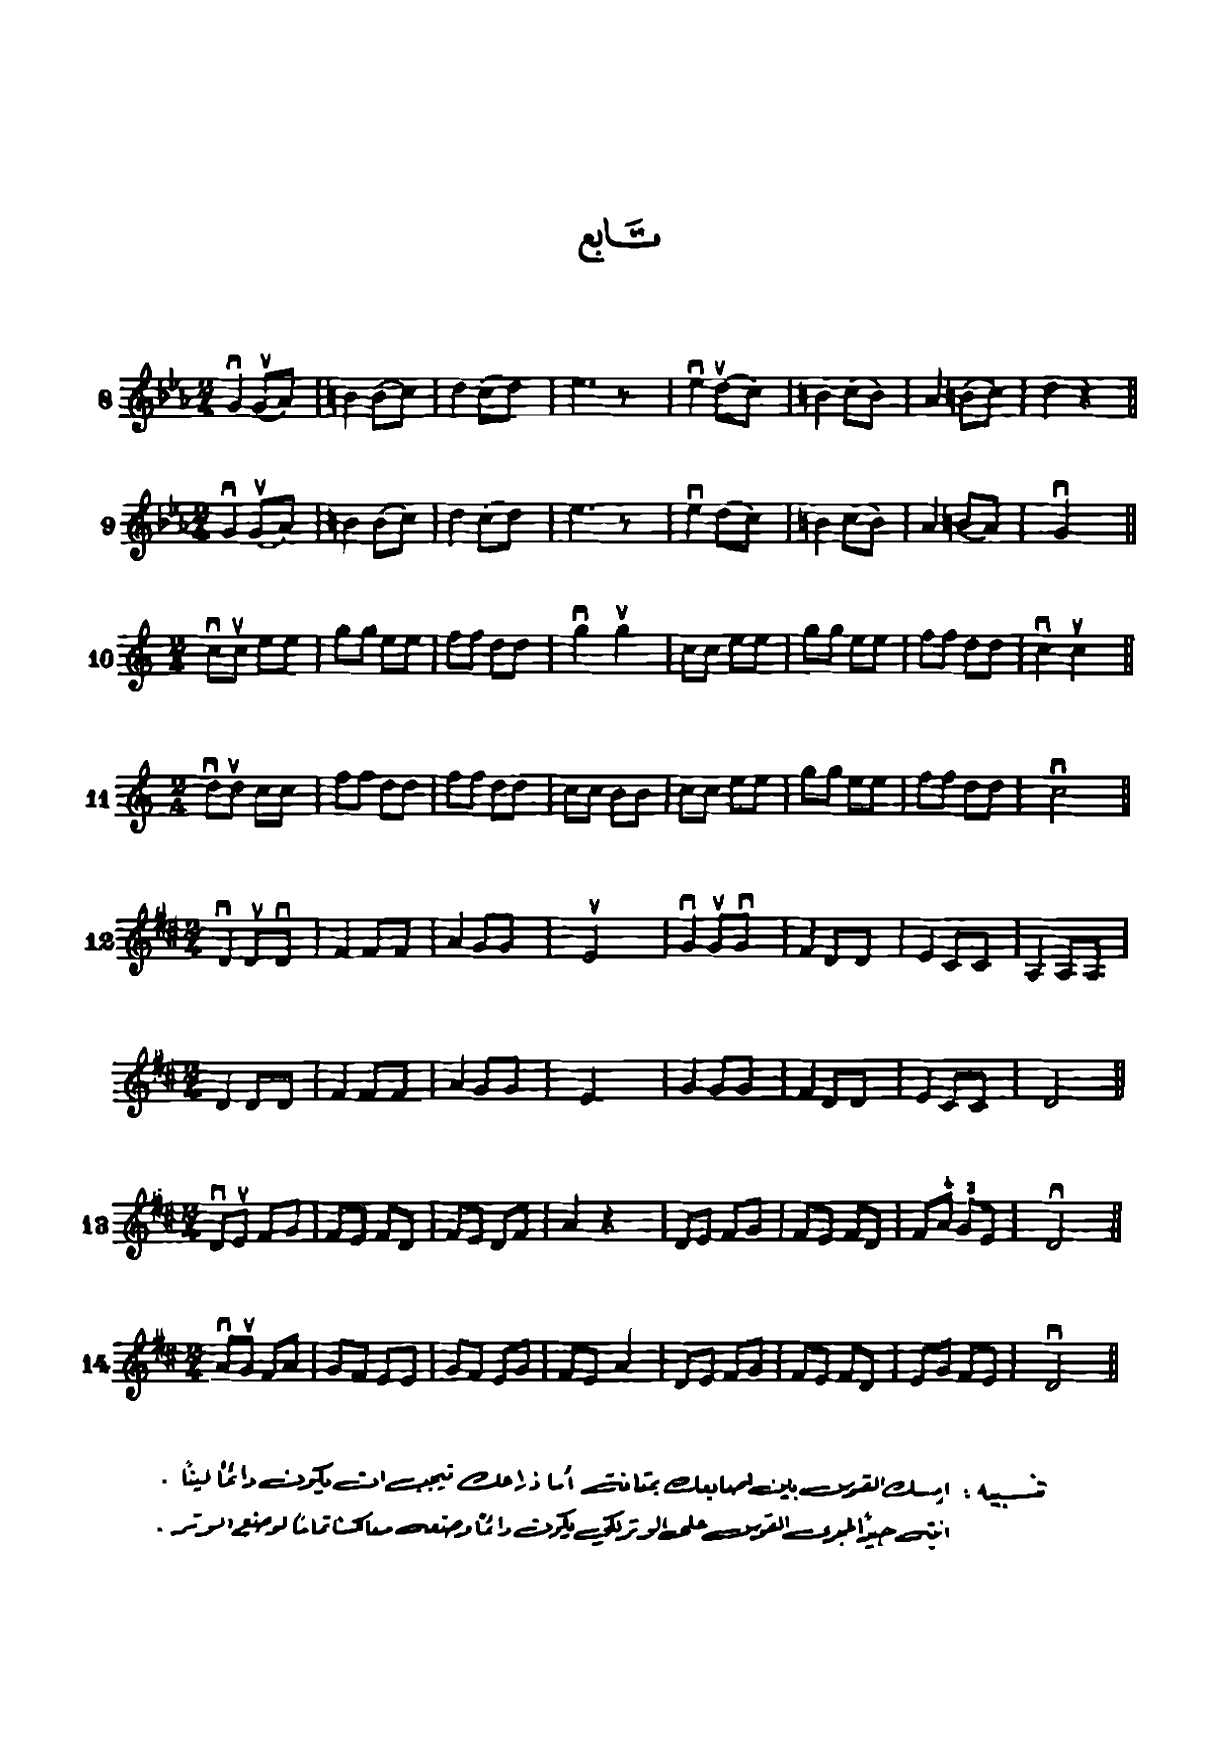 تابع
8
9
10
11
12
13
4 3
14
تنبيه : امسك القوس بين اصابعك بمتانة أما ذراعك فيجب ان يكون دائماً ليناً .
انتبه جيداً لمجرى القوس على الوتر لكي يكون دائماً وضعه معاكساً تماماً لوضع الوتر .